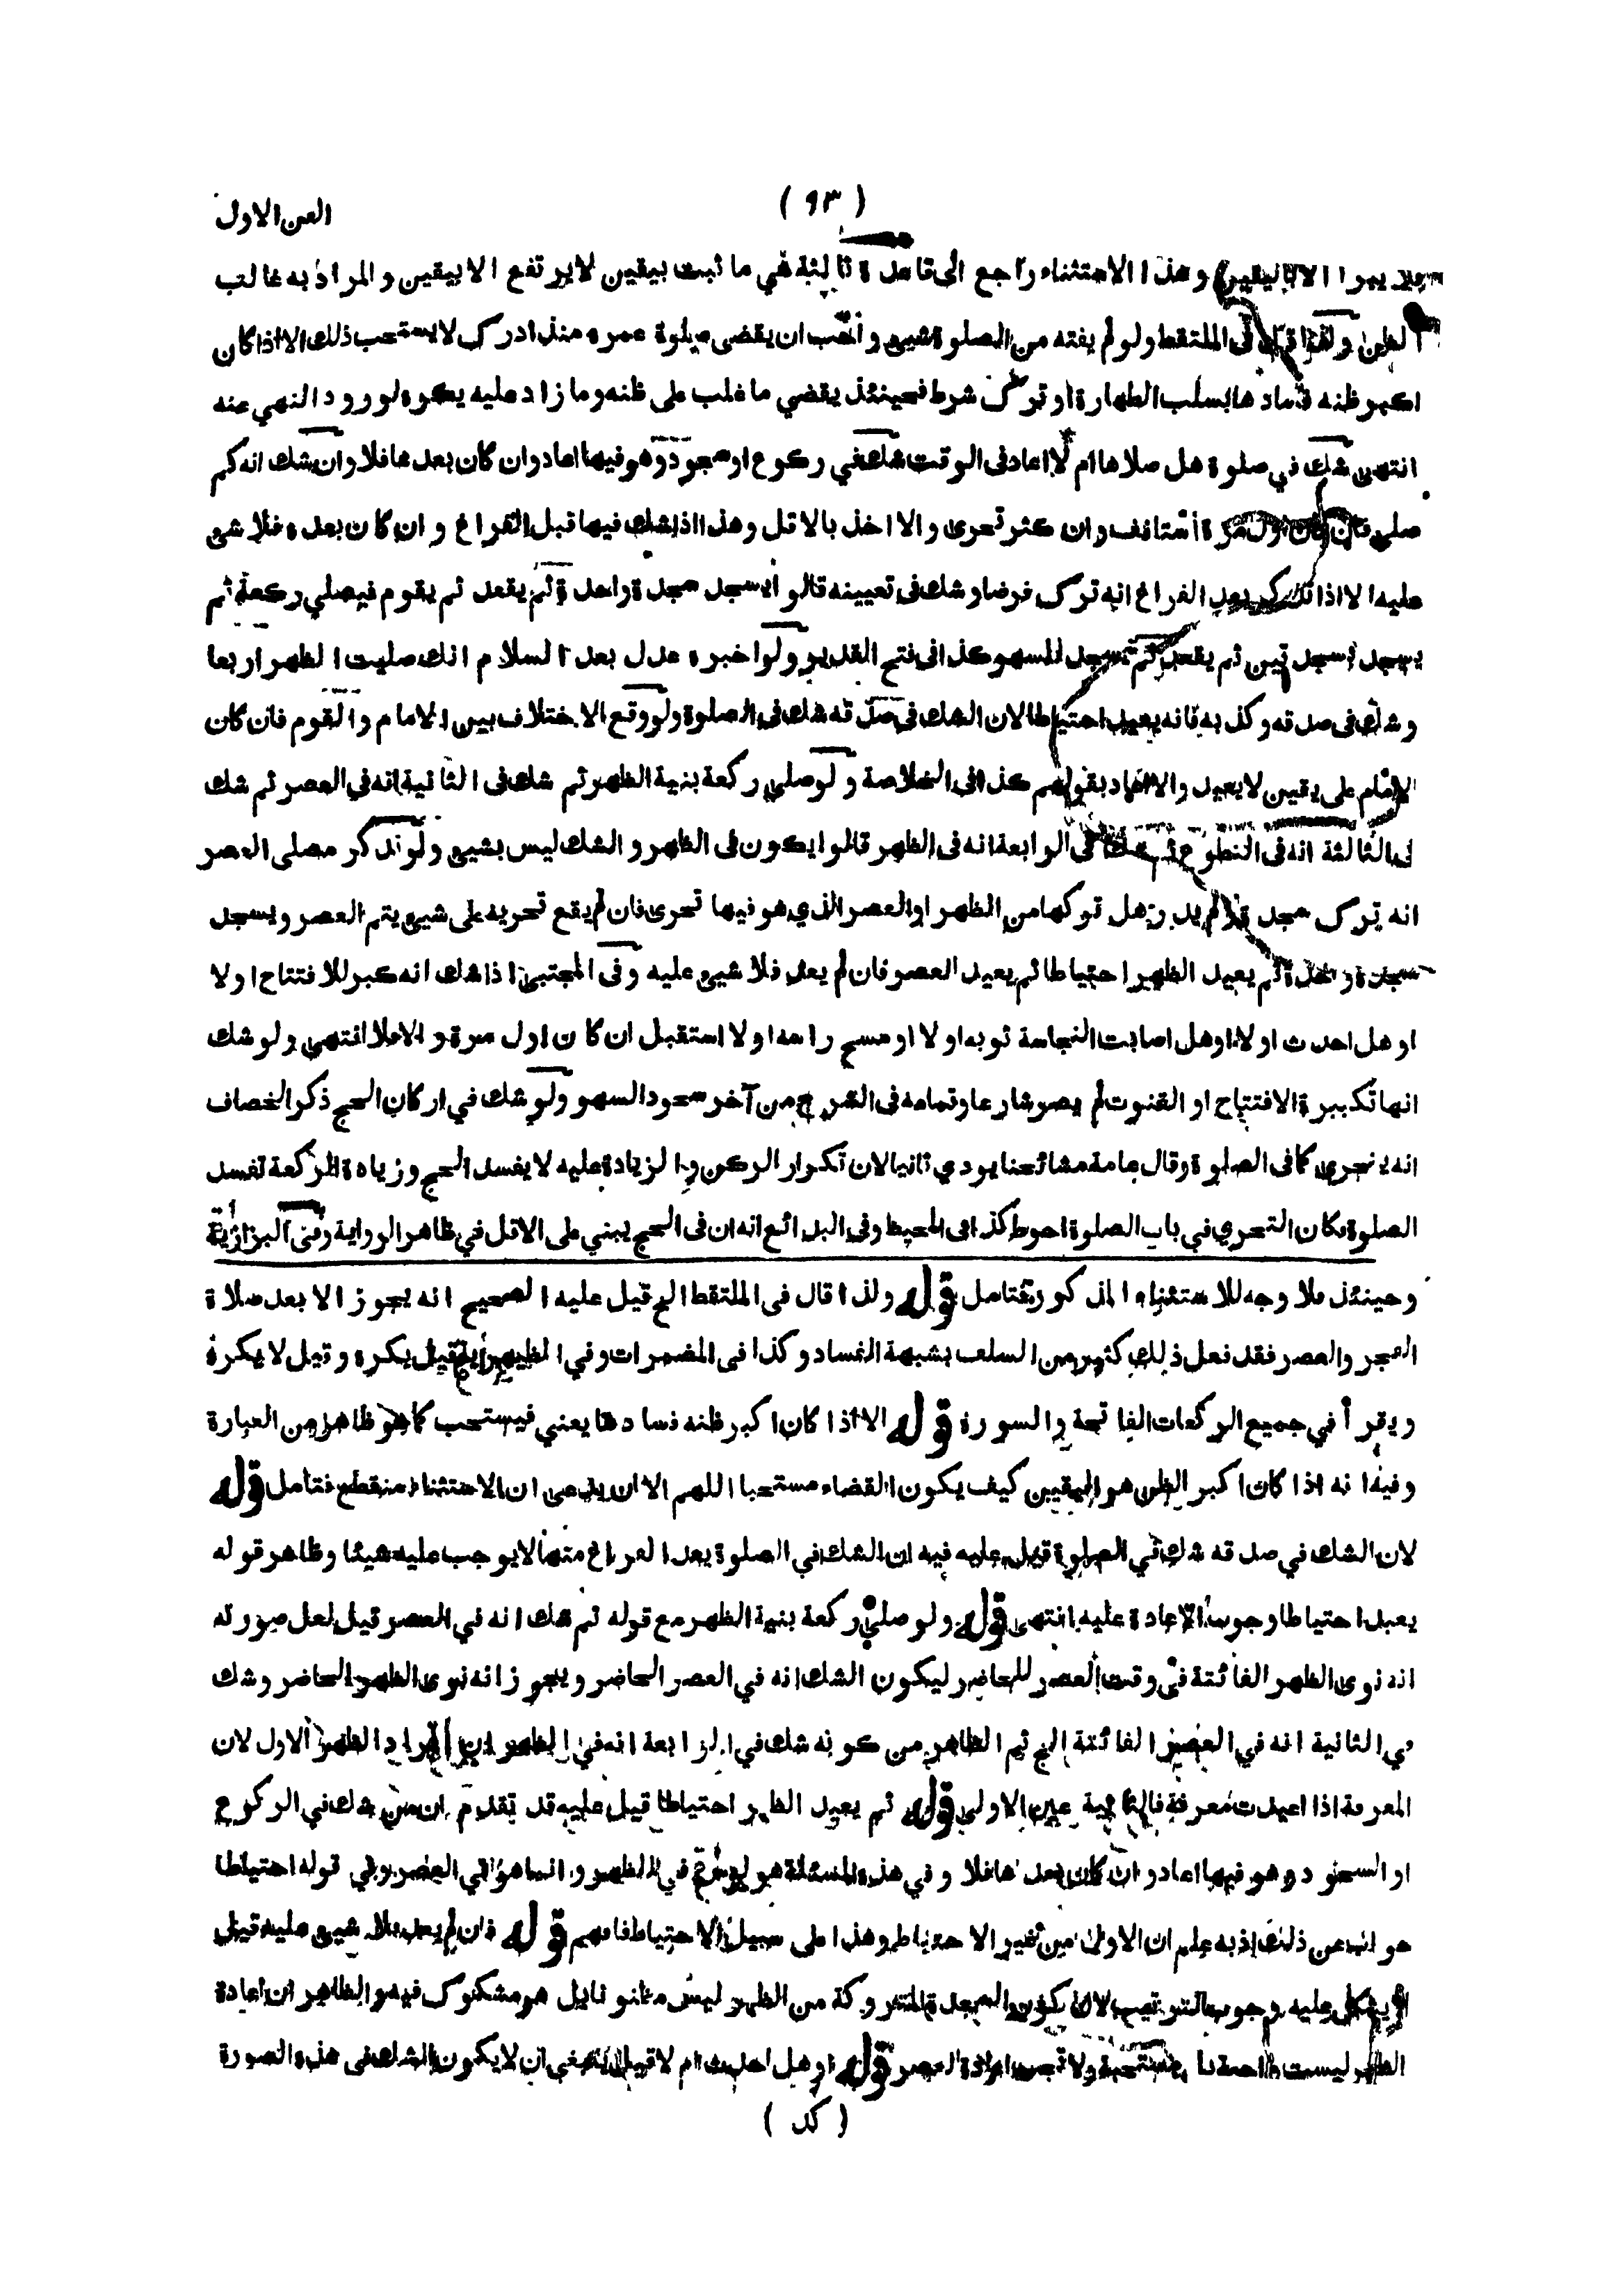 ( ٩٣ )
الفن الاول
يبرأ الا باليقين وهذا الاستثناء راجع الى قاعدة ثالثة هي ما ثبت بيقين لا يرتفع الا بيقين والمراد به غالب
الظن ولذا قال فى الملتقط ولو لم يفته من الصلوة شيئ واحب ان يقضى صلوة عمره منذ ادرك لا يستحب ذلك الا اذا كان
اكبر ظنه فسادها بسلب الطهارة او ترك شرط فحينئذ يقضي ما غلب على ظنه وما زاد عليه يكره لورود النهي عنه
انتهى شك في صلوة هل صلاها ام لا اعاد فى الوقت شك في ركوع او سجود وهو فيها اعاد وان كان بعدها فلا وان شك انه كم
صلى فان كان اول مرة أستانف وان كثر تحرى والا اخذ بالاقل وهذا اذا شك فيها قبل الفراغ وان كان بعده فلا شئ
عليه الا اذا تذكر بعد الفراغ انه ترك فرضا وشك فى تعيينه قالوا يسجد سجدة واحدة ثم يقعد ثم يقوم فيصلي ركعة ثم
يسجد سجدتين ثم يقعد ثم يسجد للسهو كذا فى فتح القدير ولو اخبره عدل بعد السلام انك صليت الظهر اربعا
وشك فى صدقه وكذبه فانه يعيد احتياطا لان الشك فى صدقه شك فى الصلوة ولو وقع الاختلاف بين الامام والقوم فان كان
الامام على يقين لا يعيد والا اعاد بقولهم كذا فى الخلاصة ولو صلى ركعة بنية الظهر ثم شك فى الثانية انه في العصر ثم شك
فى الثالثة انه فى التطوع ثم شك فى الرابعة انه فى الظهر قالوا يكون فى الظهر والشك ليس بشيئ ولو تذكر مصلى العصر
انه ترك سجدة ولم يدر هل تركها من الظهر او العصر الذي هو فيها تحرى فان لم يقع تحريه على شيئ يتم العصر ويسجد
سجدة واحدة ثم يعيد الظهر احتياطا ثم يعيد العصر فان لم يعد فلا شيئ عليه وفى المجتبى اذا شك انه كبر للافتتاح او لا
او هل احدث او لا او هل اصابت النجاسة ثوبه او لا او مسح راسه او لا استقبل ان كان اول مرة والا فلا انتهى ولو شك
انها تكبيرة الافتتاح او القنوت لم يصر شارعا وتمامه فى الشرح من آخر سجود السهو ولو شك في اركان الحج ذكر الخصاف
انه يتحرى كما فى الصلوة وقال عامة مشائخنا يودي ثانيا لان تكرار الركن والزيادة عليه لا يفسد الحج وزيادة الركعة تفسد
الصلوة فكان التحري في باب الصلوة احوط كذا فى المحيط وفى البدائع انه ان فى الحج يبني على الاقل في ظاهر الرواية وفى البزازية
وحينئذ فلا وجه للاستثناء المذكور فتامل قوله ولذا قال فى الملتقط الخ قيل عليه الصحيح انه يجوز الا بعد صلاة
الفجر والعصر فقد فعل ذلك كثير من السلف بشبهة الفساد وكذا فى المضمرات وفي الظهيرية قيل يكره وقيل لا يكره
ويقرأ في جميع الركعات الفاتحة والسورة قوله الا اذا كان اكبر ظنه فسادها يعني فيستحب كما هو ظاهر من العبارة
وفيه انه اذا كان اكبر الظن هو اليقين كيف يكون القضاء مستحبا اللهم الا ان يدعى ان الاستثناء منقطع فتامل قوله
لان الشك في صدقه شك في الصلوة قيل عليه فيه ان الشك في الصلوة بعد الفراغ منها لا يوجب عليه شيئا وظاهر قوله
يعيد احتياطا وجوب الاعادة عليه انتهى قوله ولو صلى ركعة بنية الظهر مع قوله ثم شك انه في العصر قيل لعل صورته
انه نوى الظهر الفائتة فى وقت العصر للحاضر ليكون الشك انه في العصر الحاضر ويجوز انه نوى الظهر الحاضر وشك
في الثانية انه في العصر الفائتة الخ ثم الظاهر من كونه شك في الرابعة انه في الظهر ان يراد الظهر الاول لان
المعرفة اذا اعيدت معرفة فالثانية عين الاولى قوله ثم يعيد الظهر احتياطا قيل عليه قد تقدم ان من شك في الركوع
او السجود وهو فيها اعاد وان كان بعدها فلا وفي هذه المسئلة هو في الظهر وانما هو فى العصر وفي قوله احتياطا
جواب عن ذلك اذ به علم ان الاولى من غير الاحتياط وهذا على سبيل الاحتياط فافهم قوله فان لم يعد فلا شيئ عليه قيل
يشكل عليه وجوب الترتيب الا ان يكون السجدة المتروكة من الظهر ليس مظنونا بل هو مشكوك فيه والظاهر ان اعادة
الظهر ليست واجبة بل مستحبة ولا تجب اعادة العصر قوله او هل احدث ام لا قيل ينبغي ان لا يكون الشك فى هذه الصورة
( كد )